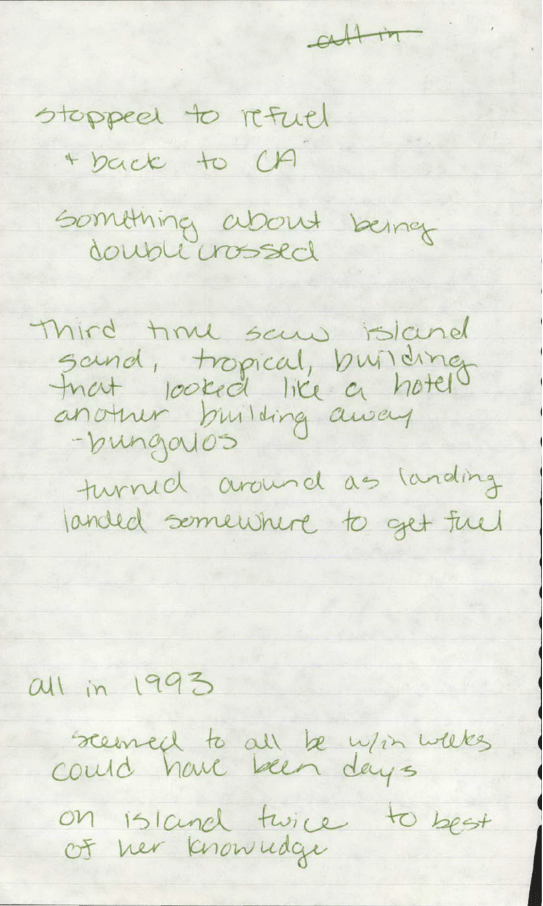 all in
stopped to refuel
+ back to CA
something about being
doublecrossed
Third time saw island
sand, tropical, building
that looked like a hotel
another building away
-bungalos
turned around as landing
landed somewhere to get fuel
all in 1993
seemed to all be w/in weeks
could have been days
on island twice to best
of her knowledge